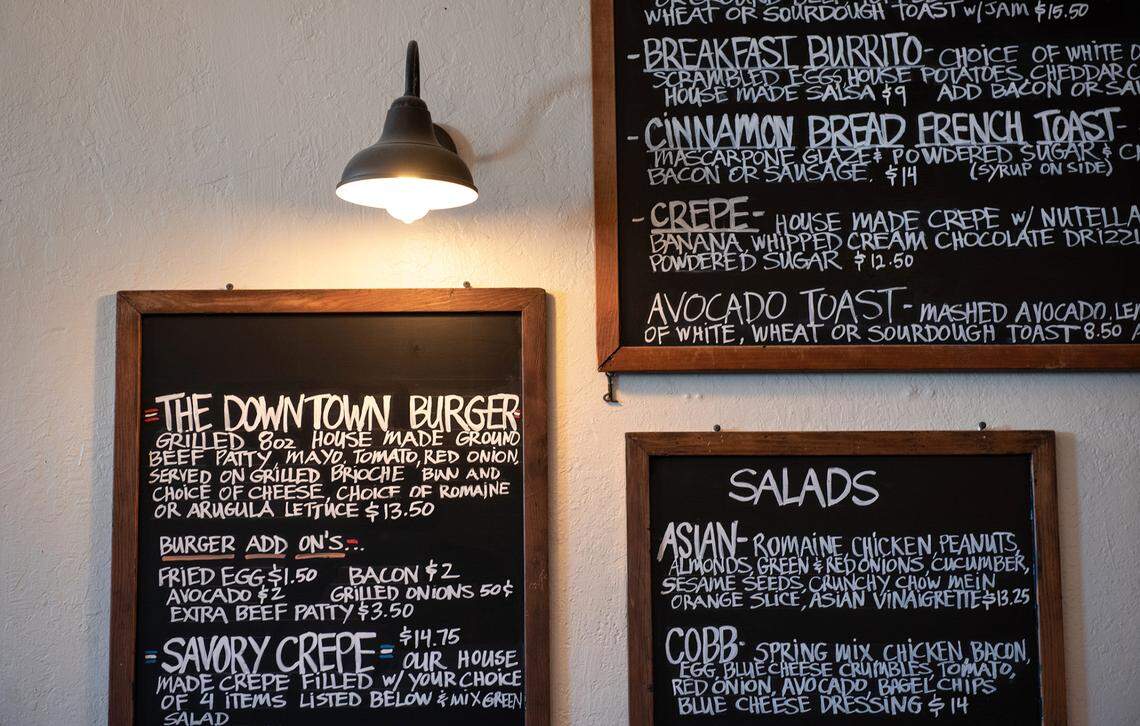 WHEAT OR SOURDOUGH TOAST W/JAM $15.50
- BREAKFAST BURRITO - CHOICE OF WHITE
SCRAMBLED EGGS, HOUSE POTATOES, CHEDDAR
HOUSE MADE SALSA $9 ADD BACON OR
- CINNAMON BREAD FRENCH TOAST -
MASCARPONE GLAZE & POWDERED SUGAR &
BACON OR SAUSAGE. $14 (SYRUP ON SIDE)
- CREPE - HOUSE MADE CREPE W/ NUTELLA
BANANA, WHIPPED CREAM CHOCOLATE
POWDERED SUGAR $12.50
AVOCADO TOAST - MASHED AVOCADO,
OF WHITE, WHEAT OR SOURDOUGH TOAST 8.50
= THE DOWNTOWN BURGER =
GRILLED 8oz HOUSE MADE GROUND
BEEF PATTY, MAYO, TOMATO, RED ONION,
SERVED ON GRILLED BRIOCHE BUN AND
CHOICE OF CHEESE, CHOICE OF ROMAINE
OR ARUGULA LETTUCE $13.50
BURGER ADD ON'S=...
FRIED EGG $1.50 BACON $2
AVOCADO $2 GRILLED ONIONS 50¢
EXTRA BEEF PATTY $3.50
= SAVORY CREPE = $14.75
OUR HOUSE
MADE CREPE FILLED W/ YOUR CHOICE
OF 4 ITEMS LISTED BELOW & MIX GREEN
SALAD
SALADS
ASIAN - ROMAINE, CHICKEN, PEANUTS,
ALMONDS, GREEN & RED ONIONS, CUCUMBER,
SESAME SEEDS, CRUNCHY CHOW MEIN
ORANGE SLICE, ASIAN VINAIGRETTE $13.25
COBB - SPRING MIX, CHICKEN, BACON,
EGG, BLUE CHEESE CRUMBLES, TOMATO,
RED ONION, AVOCADO, BAGEL CHIPS
BLUE CHEESE DRESSING $14